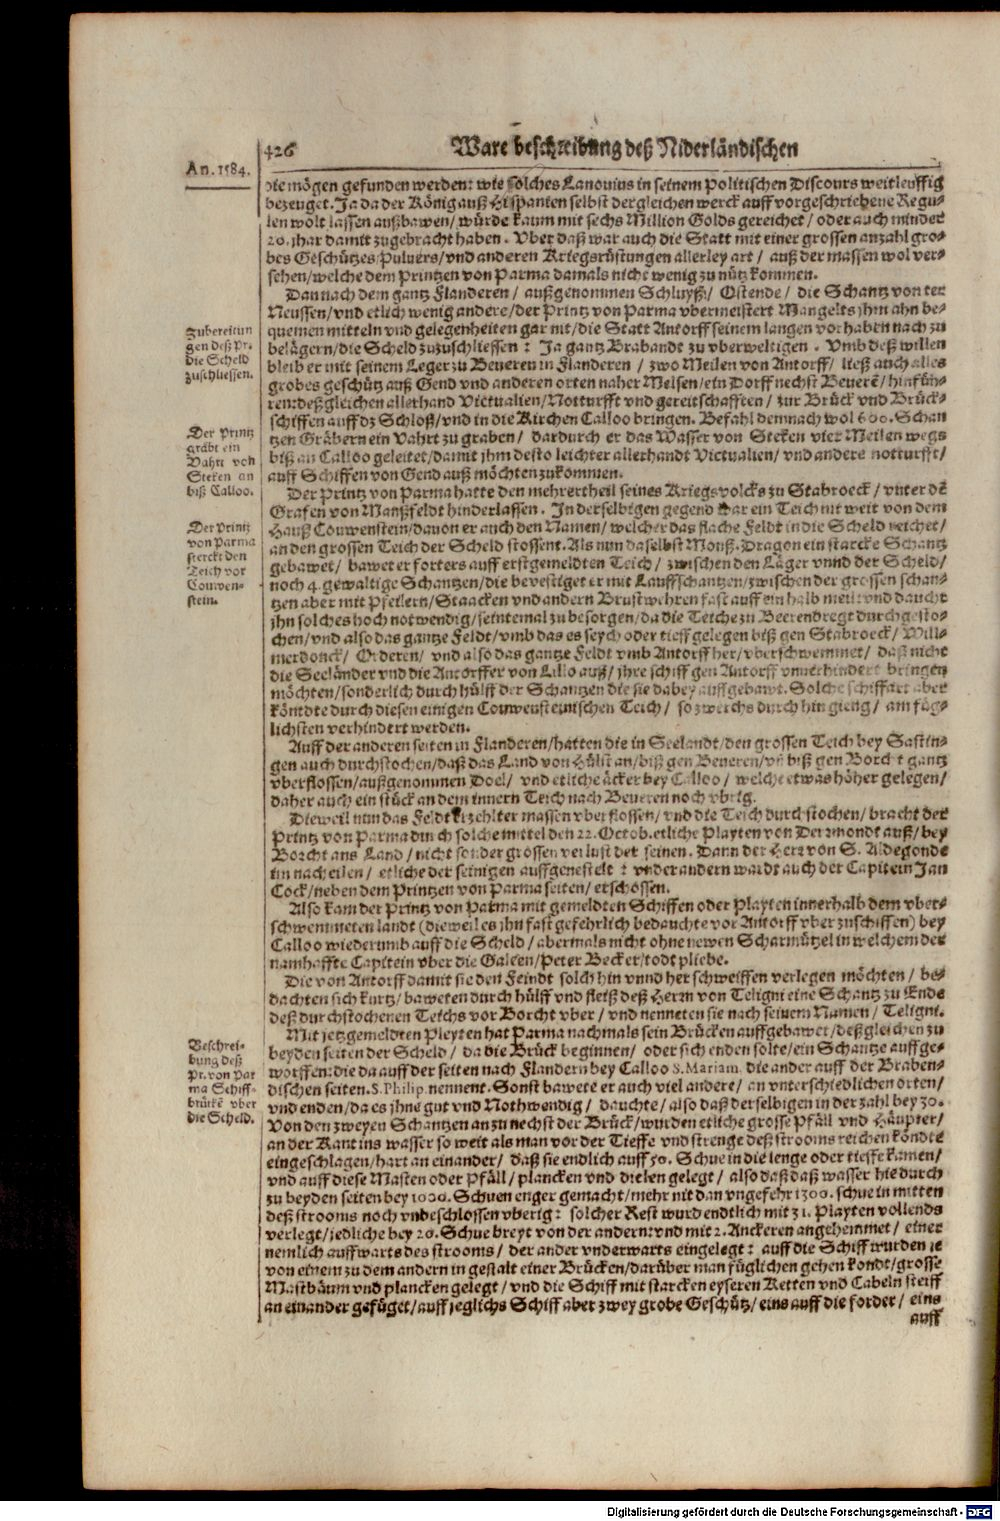 426 Ware beschreibung deß Niderländischen
An. 1584.
die mögen gefunden werden: wie solches Lanouius in seinem Politischen Discours weitleuffig
bezeuget. Ja da der König auß Hispanien selbst dergleichen werck auff vorgeschriebene Regu-
len wolt lassen außbawen/ würde kaum mit sechs Million Golds gereichet/ oder auch minder
20. jhar damit zugebracht haben. Vber daß war auch die Statt mit einer grossen anzahl gro-
bes Geschützes/Puluers/vnd anderen Kriegsrüstungen allerley art/ auß der massen wol ver-
sehen/welche dem Printzen von Parma damals nicht wenig zu nütz kommen.
Dan nach dem gantz Flanderen/ außgenommen Schluyß/ Ostende/ die Schantz von ter
Neussen/vnd etlich wenig andere/der Printz von Parma vbermeistert Mangelts jhm ahn be-
quemen mitteln vnd gelegenheiten gar nit/die Statt Antorff seinem langen vorhaben nach zu
belägern/die Scheld zuzuschliessen: Ja gantz Brabandt zu vberweltigen. Vmb deß willen
bleib er mit seinem Leger zu Beueren in Flanderen/ zwo Meilen von Antorff/ ließ auch alles
grobes geschütz auß Gend vnd anderen orten naher Melsen/ein Dorff nechst Beuerē/hinfüh-
ren:deßgleichen allerhand Victualien/Notturfft vnd gereitschafften/ zur Brück vnd Brück-
schiffen auff dz Schloß/vnd in die Kirchen Calloo bringen. Befahl demnach wol 600. Schan
tzen Gräbern ein Vahrt zu graben/ dardurch er das Wasser von Steken vier Meilen wegs
biß an Calloo geleitet/damit jhm desto leichter allerhandt Victualien/vnd andere notturfft/
auff Schiffen von Gend auß möchten zukommen.
Zubereitun
gen deß Pr.
die Scheld
zuschliessen.
Der Printz
gräbt ein
Vahrt von
Steken an
biß Calloo.
Der Printz von Parma hatte den mehrertheil seines Kriegsvolcks zu Stabroeck/vnter dē
Grafen von Manßfeldt hinderlassen. In derselbigen gegend war ein Teich nit weit von dem
Hauß Couwenstein/dauon er auch den Namen/welcher das flache Feldt in die Scheld reichet/
an den grossen Teich der Scheld stossent. Als nun daselbst Monß. Dragon ein starcke Schantz
gebawet/ bawet er forters auff erstgemeldten Teich/ zwischen den Läger vnnd der Scheld/
noch 4. gewaltige Schantzen/die bevestiget er mit Lauffschantzen/zwischen der grossen schan-
tzen aber mit Pfeilern/Staacken vnd andern Brustwehren fast auff ein halb meil: vnd daucht
jhn solches hoch notwendig/seintemal zu besorgen/da die Teiche zu Beerendregt durchgesto-
chen/vnd also das gantze Feldt/vmb das es sey hoder tieff gelegen biß gen Stabroeck/Will-
merdonck/ Orderen/ vnd also das gantze Feldt vmb Antorff her/vberschwemmet/ daß nicht
die Seeländer vnd die Antorffer von Lillo auß/ jhre schiff gen Antorff vnuerhindert bringen
möchten/sonderlich durch hülff der Schantzen die sie dabey auffgebawt. Solche schiffart aber
köntdte durch diesen einigen Couwensteinischen Teich/ so zwerchs durch hin gieng/ am füg-
lichsten verhindert werden.
Der Printz
von Parma
sterckt den
Teich vor
Couwen-
stein.
Auff der anderen seiten in Flanderen/hatten die in Seelandt/den grossen Teich bey Saftin-
gen auch durchstochen/daß das Land von Hülst an/biß gen Beueren/vñ biß gen Borcht gantz
vberflossen/außgenommen Doel/ vnd etliche äcker bey Calloo/ welche etwas höher gelegen/
daher auch ein stück an dem innern Teich nach Beueren noch vbrig.
Dieweil nun das Feldt erzehlter massen vberflossen/ vnd die Teich durchstochen/ bracht der
Printz von Parma durch solche mittel den 22. Octob. etliche Playten von Dermondt auß/ bey
Borcht ans Land/nicht sonder grossen verlust der seinen. Dann der Herr von S. Aldegonde
im nacheilen/ etliche der seinigen auffgenestelt: vnder andern wardt auch der Capitein Jan
Cock/neben dem Printzen von Parma seiten/ erschossen.
Also kam der Printz von Parma mit gemeldten Schiffen oder Playten innerhalb dem vber-
schwemmeten landt (dieweil es jhn fast gefehrlich bedauchte vor Antorff vber zuschiffen) bey
Calloo wiederumb auff die Scheld/abermals nicht ohne newen Scharmützel in welchem der
namhaffte Capitein vber die Galeen/Peter Becker/todt pliebe.
Die von Antorff damit sie den Feindt solch hin vnnd her schweiffen verlegen möchten/ be-
dachten sich kurtz/baweten durch hülff vnd fleiß deß Herrn von Teligni eine Schantz zu Ende
deß durchstochenen Teichs vor Borcht vber/ vnd nenneten sie nach seinem Namen/ Teligni.
Mit jetzgemeldten Pleyten hat Parma nachmals sein Brücken auffgebawet/deßgleichen zu
beyden seiten der Scheld/ da die Brück beginnen/ oder sich enden solte/ein Schantze auffge-
worffen: die da auff der seiten nach Flandern bey Calloo S. Mariam, die ander auff der Braben-
dischen seiten. S. Philip. nennent. Sonst bawete er auch viel andere/ an vnterschiedlichen örten/
vnd enden/da es jhne gut vnd Nothwendig/ dauchte/also daß derselbigen in der zahl bey 30.
Von den zweyen Schantzen an zu nechst der Brück/wurden etliche grosse Pfäll vnd Häupter/
an der Kant ins wasser so weit als man vor der Tieffe vnd strenge deß strooms reichen köndte
eingeschlagen/hart an einander/ daß sie endlich auff 50. Schue in die lenge oder tieffe kamen/
vnd auff diese Masten oder Pfäll/plancken vnd dielen gelegt/ also daß daß wasser hiedurch
zu beyden seiten bey 1000. Schuen enger gemacht/mehr nit dan vngefehr 1300. schue in mitten
deß strooms noch vnbeschlossen vberig: solcher Rest wurd endtlich mit 31. Playten vollends
verlegt/jedliche bey 20. Schue breyt von der andern: vnd mit 2. Anckeren angehemmet/ einer
nemlich auffwarts des strooms/ der ander vnderwarts eingelegt: auff die Schiff wurden je
von einem zu dem andern in gestalt einer Brücken/darüber man füglichen gehen kondt/grosse
Mastbäum vnd plancken gelegt/vnd die Schiff mit starcken eyseren Ketten vnd Cabeln steiff
an einander gefüget/auff jeglichs Schiff aber zwey grobe Geschütz/eins auff die forder/ eins
auff
Beschrei-
bung deß
Pr. von Par
ma Schiff-
brückē vber
die Scheld.
Digitalisierung gefördert durch die Deutsche Forschungsgemeinschaft - DFG